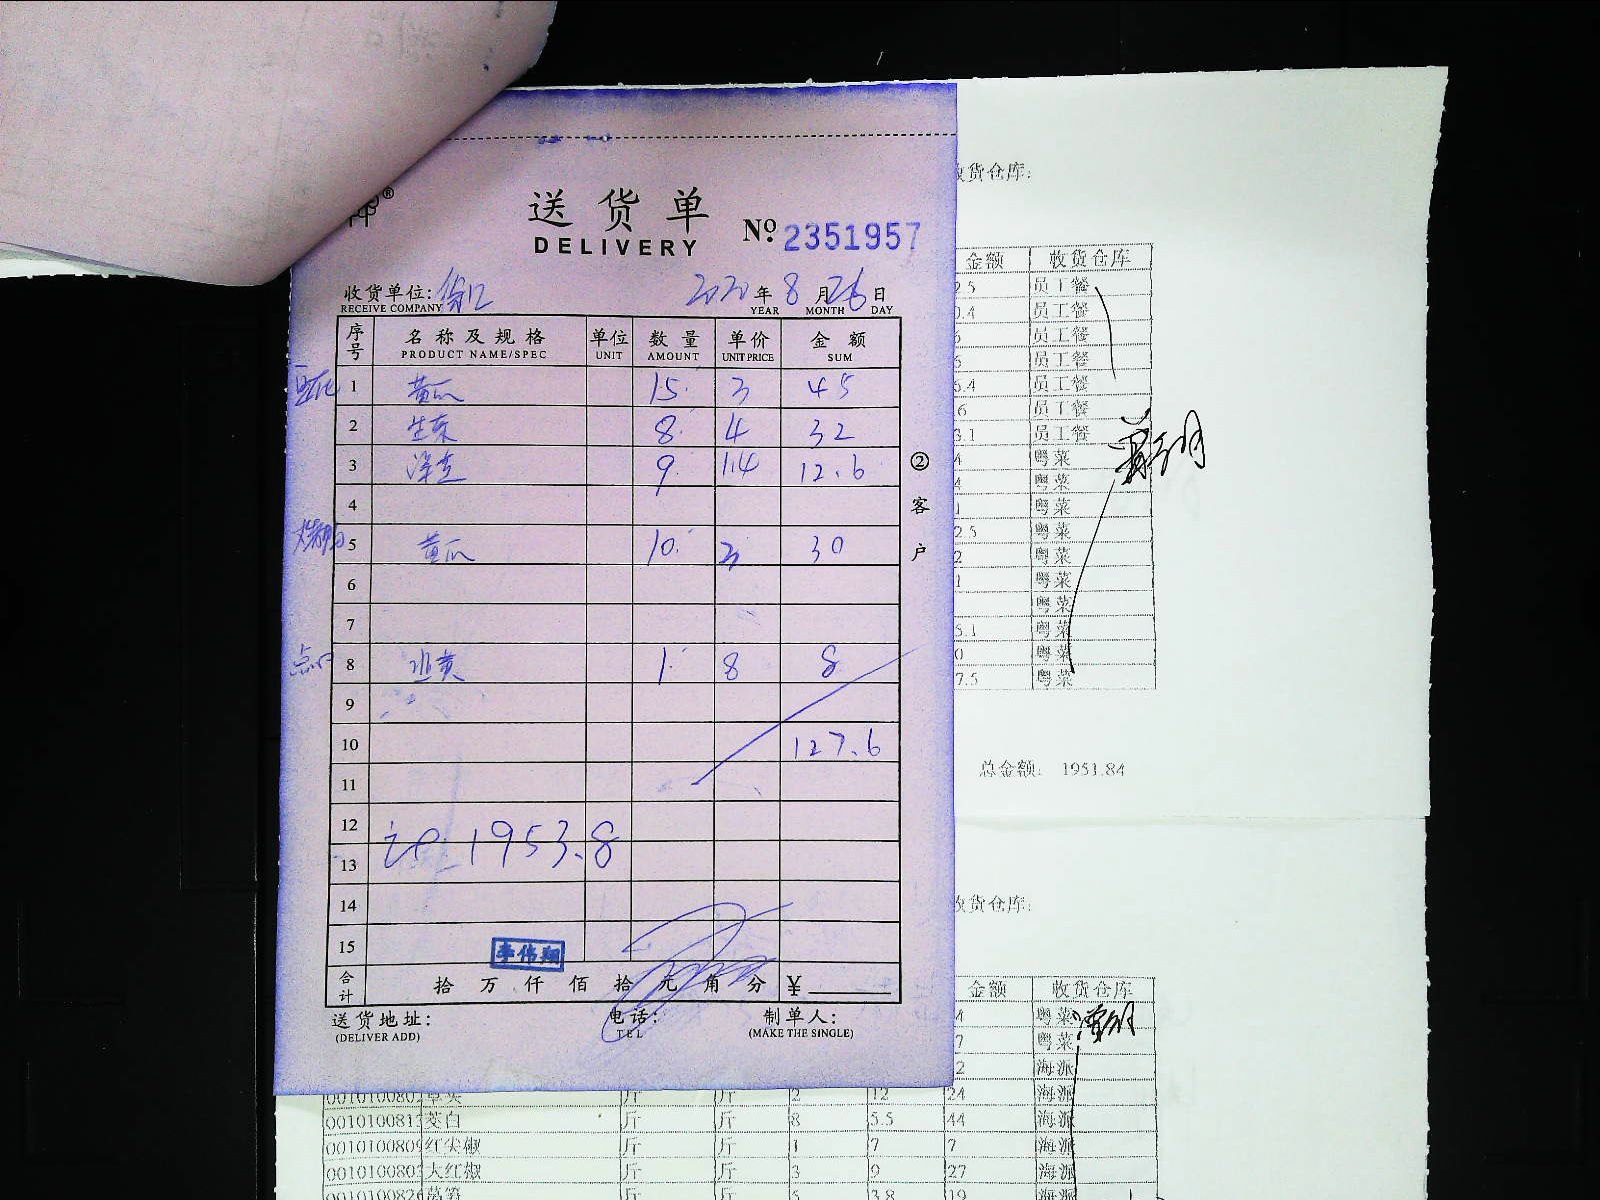 送货单
DELIVERY
№ 2351957
收货单位: 徐汇
RECEIVE COMPANY
2020年8月26日
YEAR MONTH DAY
序号 名称及规格 单位 数量 单价 金额
PRODUCT NAME/SPEC UNIT AMOUNT UNIT PRICE SUM
1 黄瓜 15. 3 45
2 生菜 8. 4 32
3 洋芋 9. 1.4 12.6
4
5 黄瓜 10. 3 30
6
7
点心 8 韭黄 1. 8 8
9
10 127.6
11
12
13
1953.8
14
15
李伟翔
合计 拾万仟佰拾元角分 ¥
送货地址:
(DELIVER ADD)
电话:
TEL
制单人:
(MAKE THE SINGLE)
②客户
收货仓库:
金额 收货仓库
2.5 员工餐
0.4 员工餐
员工餐
员工餐
5.4 员工餐
6 员工餐
3.1 员工餐
4 粤菜
4 粤菜
1 粤菜
2.5 粤菜
2 粤菜
1 粤菜
粤菜
5.1 粤菜
0 粤菜
7.5 粤菜
总金额: 1951.84
收货仓库:
金额 收货仓库
4 粤菜
7 粤菜
2 海派
斤 斤 2 12 24 海派
茭白 斤 斤 8 5.5 44 海派
红尖椒 斤 斤 1 7 7 海派
大红椒 斤 斤 3 9 27 海派
莴笋 斤 斤 5 3.8 19 海派